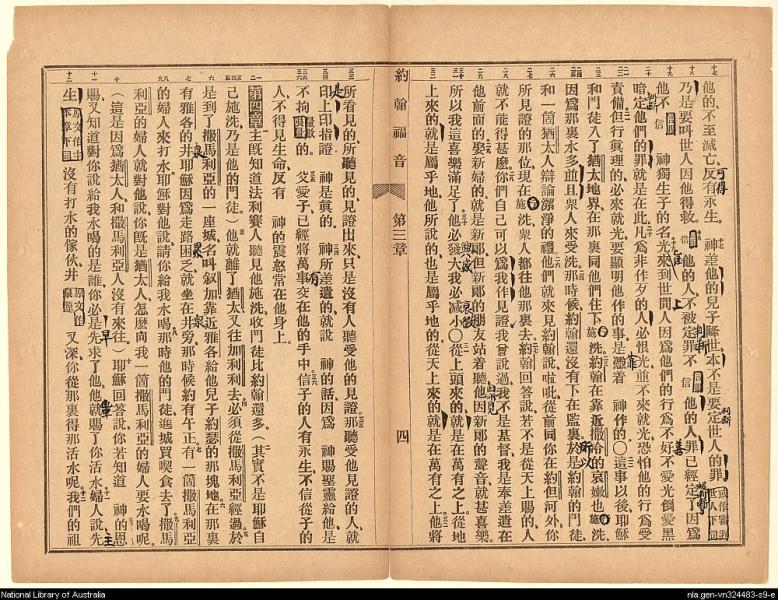 他的、不至滅亡、反有永生。神差他的兒子降世、本不是要定世人的罪
乃是要叫世人因他得救。信他的人、不被定罪、不信他的人、罪已經定了、因爲
他不信神獨生子的名。光來到世間、世人因他們的行爲不好、不愛光倒愛黑
暗、定他們的罪就是在此。凡爲非作歹的人、必恨光、並不來就光、恐怕他的行爲受
責備。但行眞理的必來就光、要顯明他作的事是憑著神作的○這事以後、耶穌
和門徒入了猶太地界、在那裏同他們住下、施洗。約翰在靠近撒冷的哀嫩也施洗、
因爲那裏水多、並且衆人來受洗。那時候約翰還沒有下在監裏。於是約翰的門徒
和一箇猶太人辯論潔淨的禮。他們就來見約翰說、啦吡、從前同你在約但河外、你
所見證的那位、現在施洗、衆人都往他那裏去。約翰回答說、若不是從天上賜的、人
就不能得甚麼。你們自己可以爲我作見證、我曾說過、我不是基督、我是奉差遣在
他前面的。娶新婦的、就是新郎、但新郎的朋友站着聽他、因新郎的聲音就甚喜樂。
所以我這喜樂滿足了。他必發大、我必減小○從上頭來的、就是在萬有之上、從地
上來的、就是屬乎地、他所說的、也是屬乎地的、從天上來的、就是在萬有之上。他將
約翰福音 第三章 四
所看見的、所聽見的、見證出來、只是沒有人聽受他的見證。那聽受他見證的人、就
印上印、指證神是眞的。神所差遣的、就說神的話、因爲神賜聖靈給他、是
不拘限量的。父愛子、已經將萬事交在他的手中。信子的人有永生、不信從子的
人、不得見生命、反有神的震怒常在他身上。
第四章主旣知道法利賽人聽見他施洗收門徒比約翰還多、(其實不是耶穌自
己施洗、乃是他的門徒)他就離了猶太、又往加利利去、必須從撒馬利亞經過。於
是到了撒馬利亞的一座城、名叫叙加、靠近雅各給他兒子約瑟的那塊地。在那裏
有雅各的井、耶穌因爲走路困乏、就坐在井旁、那時候約有午正。有一箇撒馬利亞
的婦人來打水、耶穌對他說、請你給我水喝。那時他的門徒進城買喫食去了。撒馬
利亞的婦人就對他說、你旣是猶太人、怎麼向我一箇撒馬利亞的婦人要水喝呢、
(這是因爲猶太人和撒馬利亞人沒有來往)耶穌回答說、你若知道神的恩
賜、又知道對你說給我水喝的是誰、你必是先求了他、他就賜了你活水。婦人說、先
生、沒有打水的傢伙、井又深、你從那裏得那活水呢。我們的祖
National Library of Australia
nla.gen-vn324483-s9-e